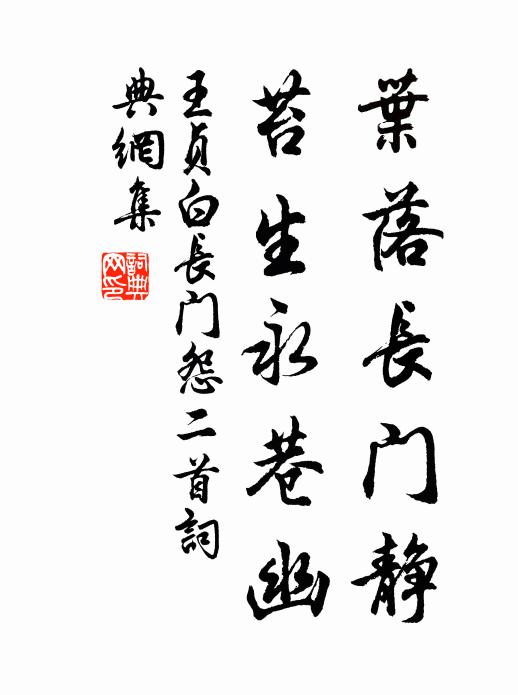 葉落長门静
苔生永巷幽
王貞白長门怨二首詞
典網集
詞典网印